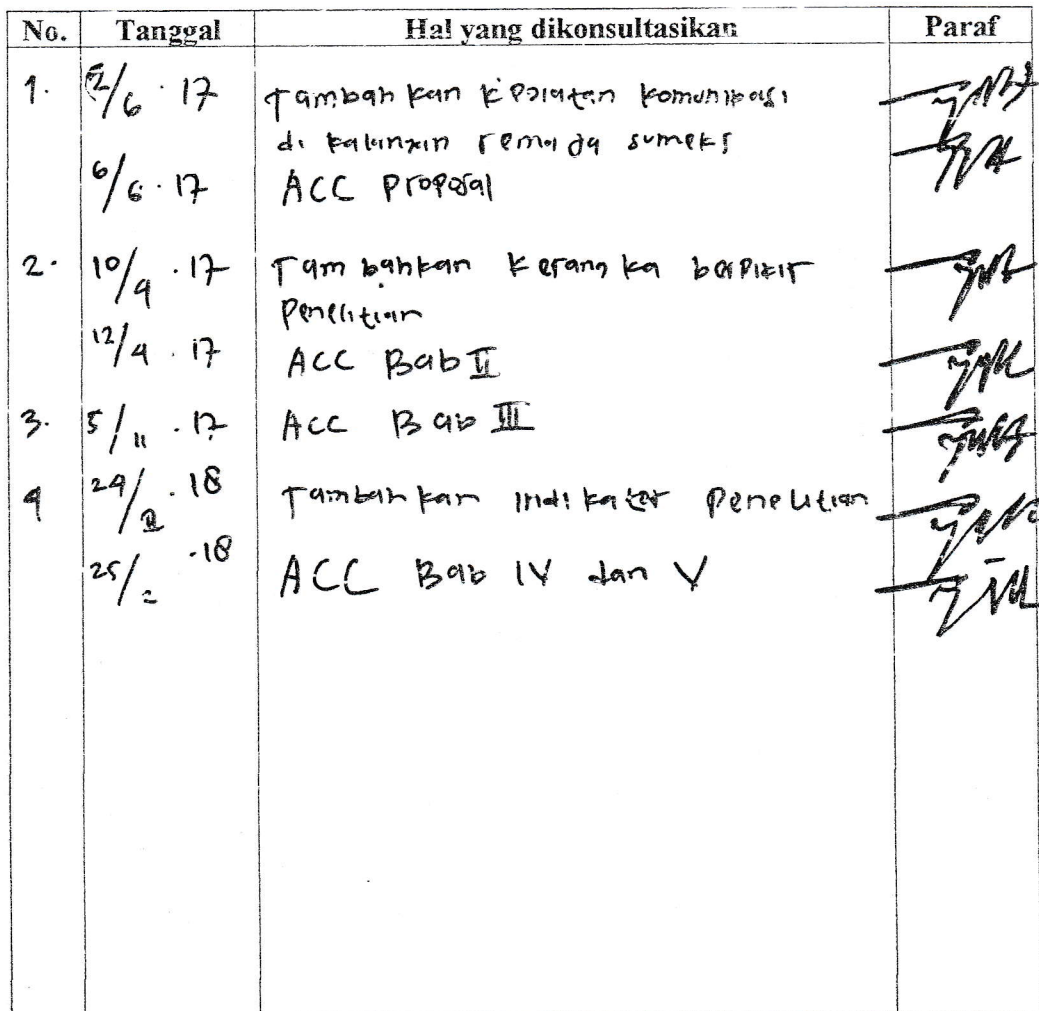 No. Tanggal Hal yang dikonsultasikan Paraf
1. 2/6 . 17 Tambahkan kegiatan komunikasi
di kalangan remaja sumeks
6/6 . 17 ACC Proposal
2. 10/9 . 17 Tambahkan Kerangka berpikir
Penelitian
12/9 . 17 ACC Bab II
3. 5/11 . 17 ACC Bab III
4 24/II . 18 Tambahkan indikator Penelitian
25/= . 18 ACC Bab IV dan V